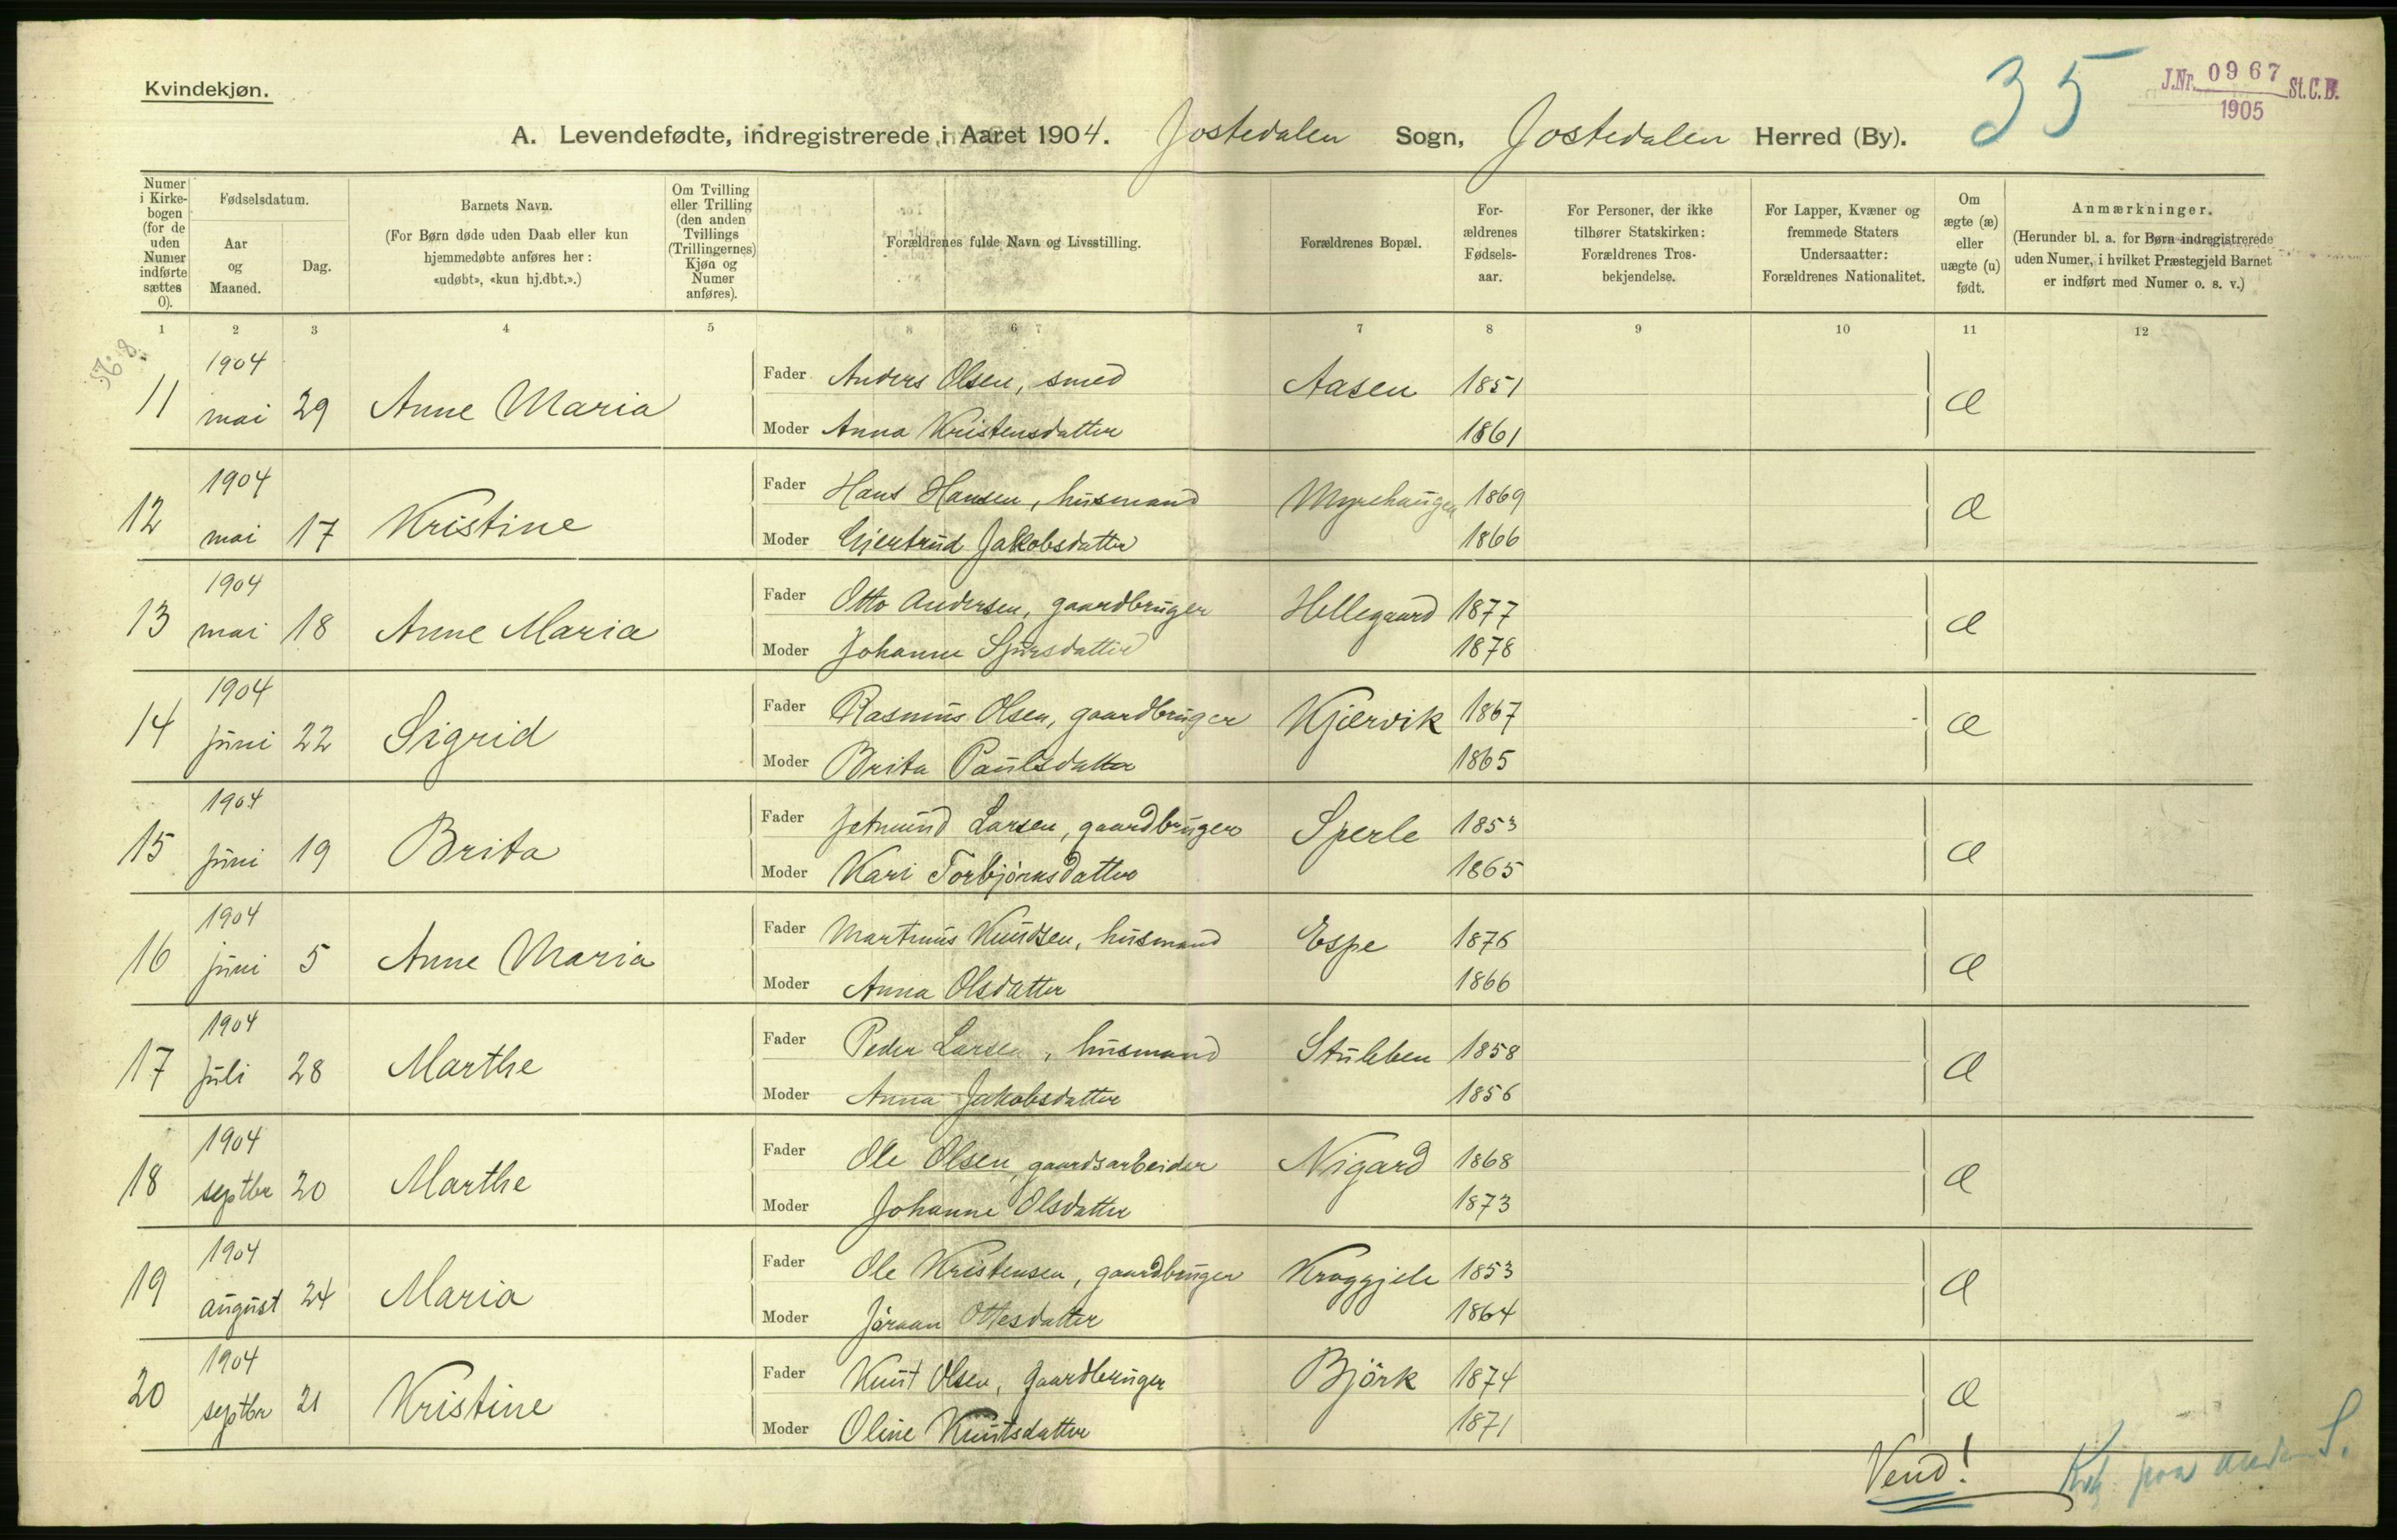 Kvindekjøn.
35
J.Nr. 0967 St.C.B.
1905
A. Levendefødte, indregistrerede i Aaret 1904. Jostedalen Sogn, Jostedalen Herred (By).
Numer i Kirkebogen (for de uden Numer indførte sættes 0).
Fødselsdatum.
Aar og Maaned.
Dag.
Barnets Navn.
(For Børn døde uden Daab eller kun hjemmedøbte anføres her: «udøbt», «kun hj.dbt.».)
Om Tvilling eller Trilling (den anden Tvillings (Trillingernes) Kjøn og Numer anføres).
Forældrenes fulde Navn og Livsstilling.
Forældrenes Bopæl.
Forældrenes Fødselsaar.
For Personer, der ikke tilhører Statskirken: Forældrenes Trosbekjendelse.
For Lapper, Kvæner og fremmede Staters Undersaatter: Forældrenes Nationalitet.
Om ægte (æ) eller uægte (u) født.
Anmærkninger.
(Herunder bl. a. for Børn indregistrerede uden Numer, i hvilket Præstegjeld Barnet er indført med Numer o. s. v.)
1 2 3 4 5 6 7 8 9 10 11 12
11 1904 mai 29 Anne Maria Fader Anders Olsen, smed Aasen 1851 æ
Moder Anna Kristensdatter 1861
12 1904 mai 17 Kristine Fader Hans Hansen, husmand Myrehaugen 1869 æ
Moder Gjertrud Jakobsdatter 1866
13 1904 mai 18 Anne Maria Fader Otto Andersen, gaardbruger Hellegaard 1877 æ
Moder Johanne Sjursdatter 1878
14 1904 juni 22 Sigrid Fader Rasmus Olsen, gaardbruger Kjærvik 1867 æ
Moder Brita Paulsdatter 1865
15 1904 juni 19 Brita Fader Jetmund Larsen, gaardbruger Sperle 1853 æ
Moder Kari Torbjørnsdatter 1865
16 1904 juni 5 Anne Maria Fader Martinus Knudsen, husmand Espe 1876 æ
Moder Anna Olsdatter 1866
17 1904 juli 28 Marthe Fader Peder Larsen, husmand 1858 æ
Moder Anna Jakobsdatter 1856
18 1904 septbr 20 Marthe Fader Ole Olsen, gaardsarbeider Nigard 1868 æ
Moder Johanne Olsdatter 1873
19 1904 august 24 Maria Fader Ole Kristensen, gaardbruger Kroggjele 1853 æ
Moder Jóraan Ottesdatter 1864
20 1904 septbr 21 Kristine Fader Knut Olsen, gaardbruger Björk 1874 æ
Moder Oline Knutsdatter 1871
Vend!
paa anden S.